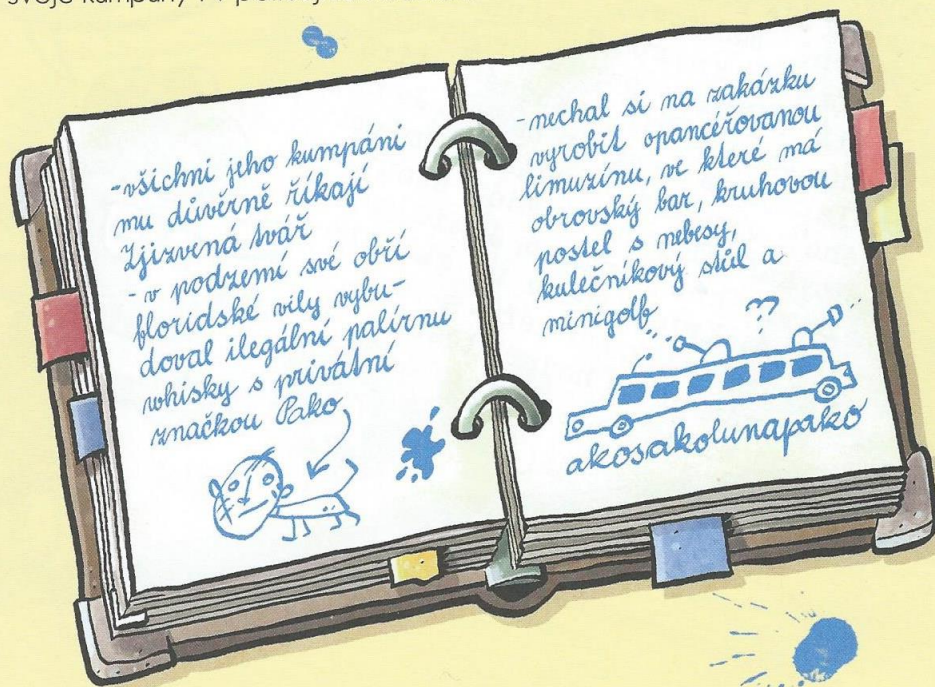 svoje kumpány
-všichni jeho kumpáni
mu důvěrně říkají
Zjizvená tvář
- v podzemí své obří
floridské vily vybu-
doval ilegální palírnu
whisky s privátní
značkou Pako
-nechal si na zakázku
vyrobit opancéřovanou
limuzínu, ve které má
obrovský bar, kruhovou
postel s nebesy,
kulečníkový stůl a
minigolf
akosakolunapako